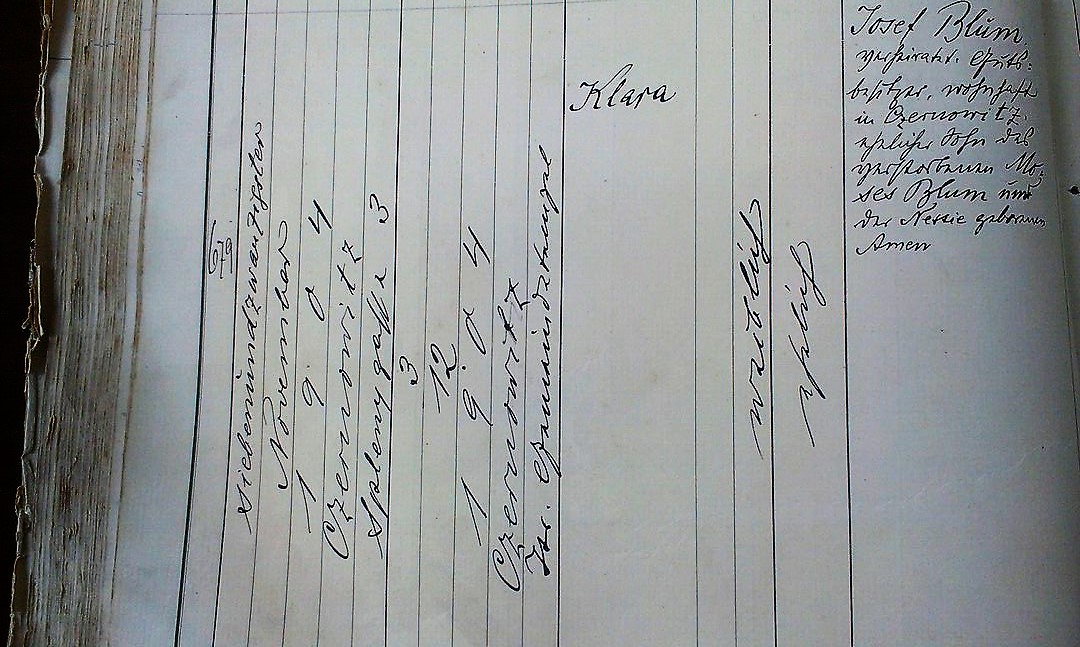 679
Siebenundzwanzigster
November
1904
Czernowitz
Splenygasse 3
3
12
1904
Czernowitz
Isr. Gemeindetempel
Klara
weiblich
ehelich
Josef Blum,
verheiratet. Guts-
besitzer, wohnhaft
in Czernowitz.
ehelicher Sohn des
verstorbenen Mo-
ses Blum und
der Nessie geborenen
Amen